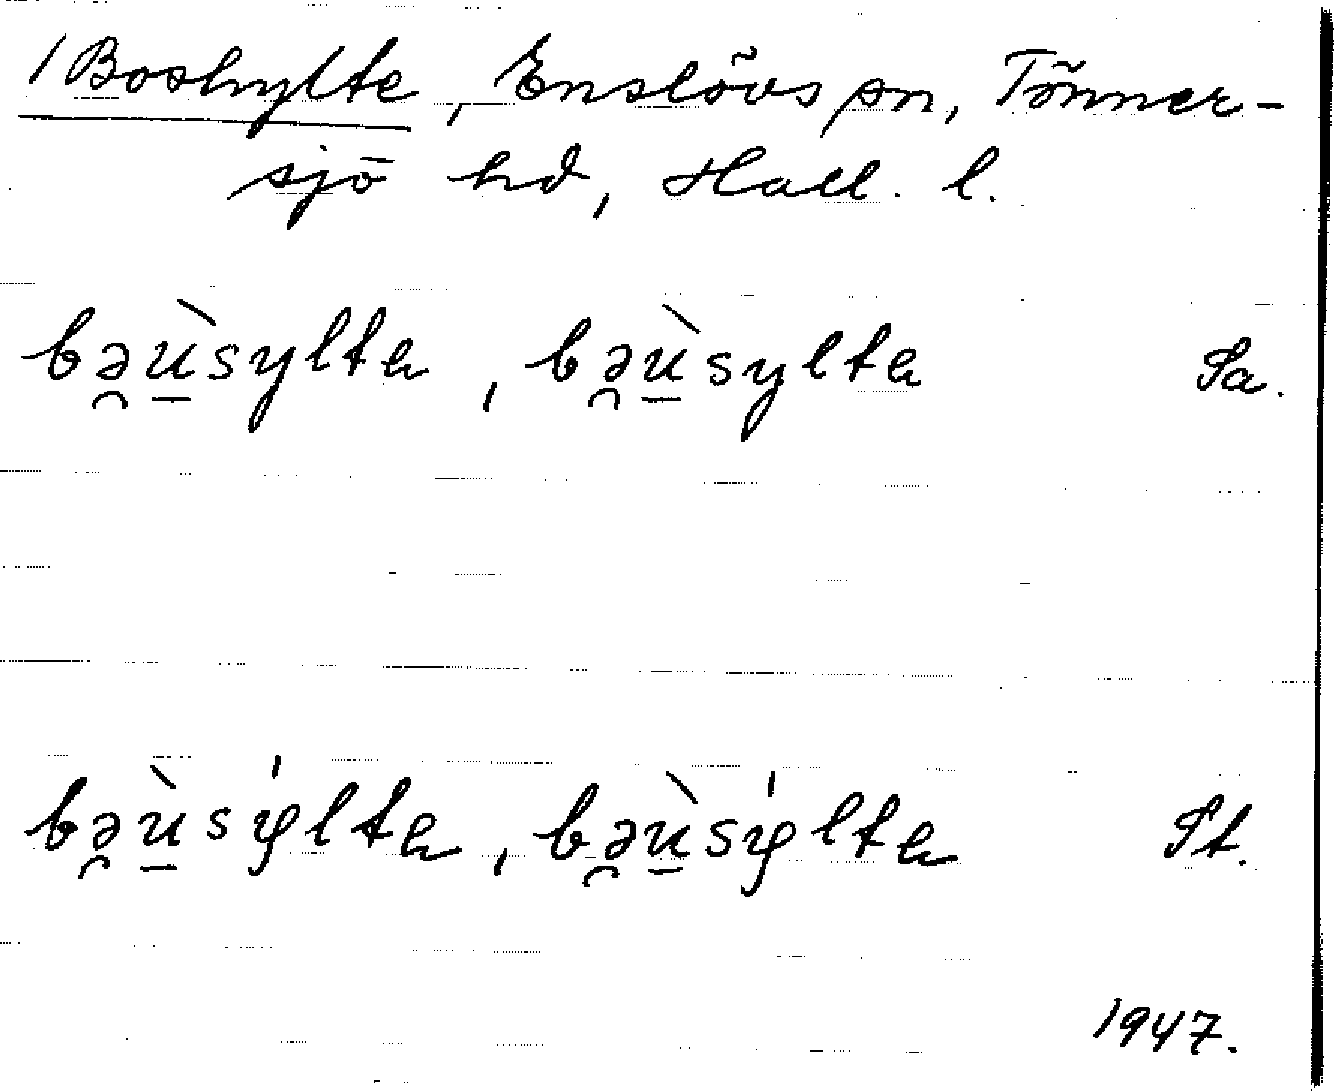 /Boshylte, Enslövs sn, Tönner-
sjö hd, Hall. l.
bə̯ù̱sylta, bə̯ù̱sylta Sa.
bə̯ù̱sýlta, bə̯ù̱sýlta St.
1947.